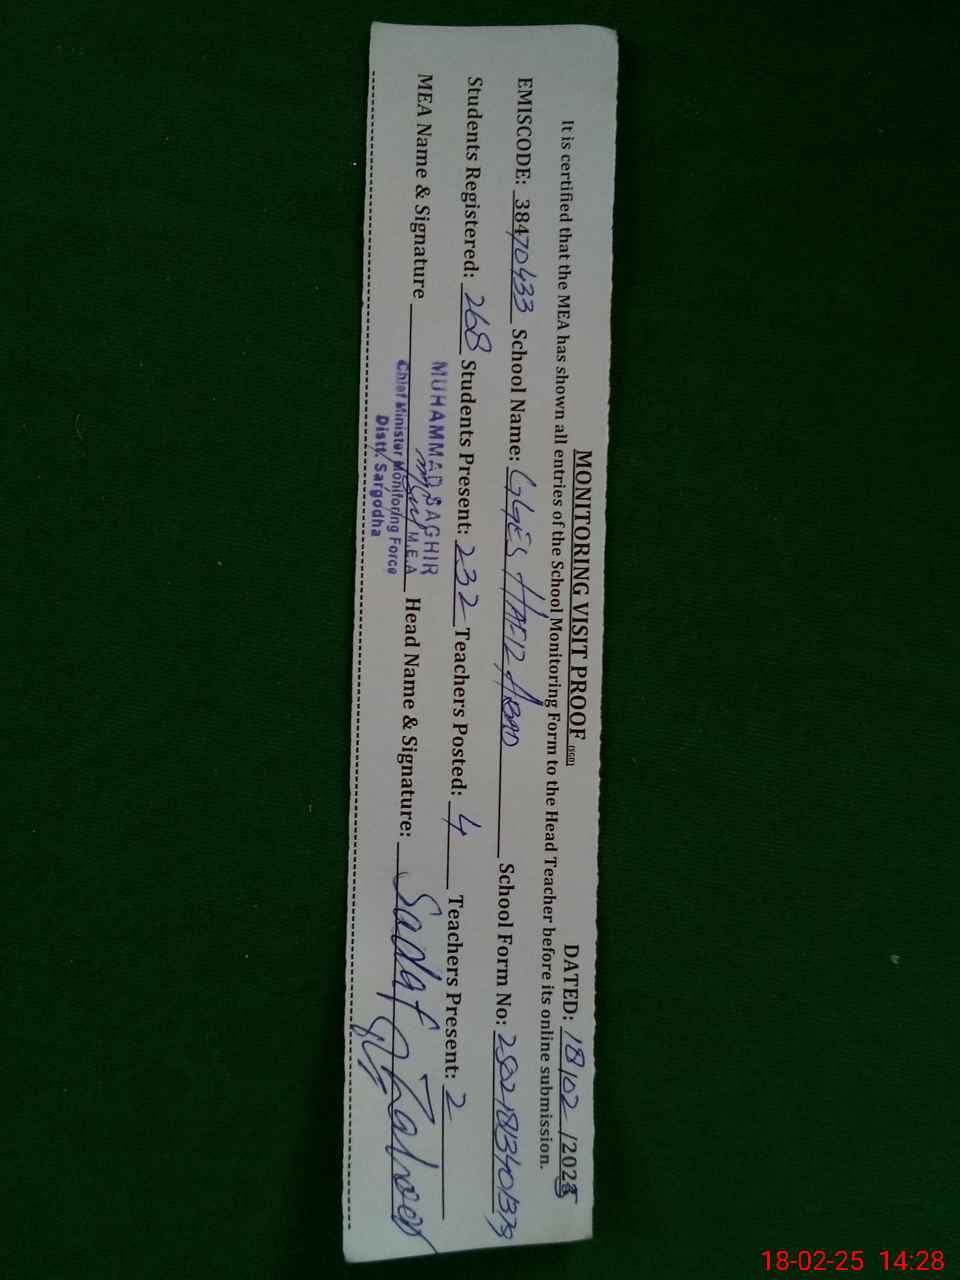 MONITORING VISIT PROOF (SGD)
DATED: 18/02/2025
It is certified that the MEA has shown all entries of the School Monitoring Form to the Head Teacher before its online submission.
EMISCODE: 38470433 School Name: GGES HAFIZ ABAD School Form No:
Students Registered: 268 Students Present: 232 Teachers Posted: 4 Teachers Present: 2
MEA Name & Signature Head Name & Signature: Sadaf
MUHAMMAD SAGHIR
M.E.A
Chief Minister Monitoring Force
Distt. Sargodha
18-02-25 14:28